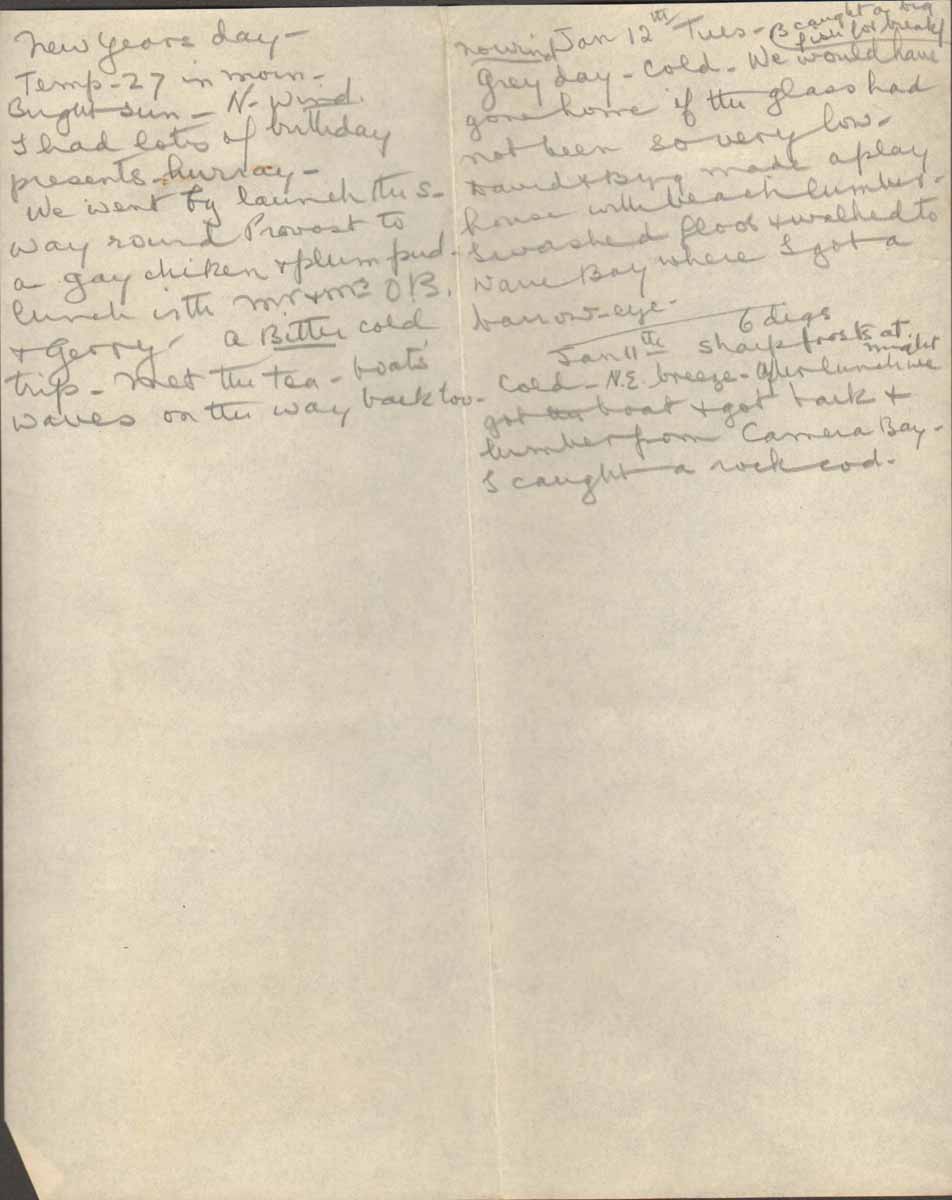 New Years day -
Temp - 27 in morn -
Bright sun - N - Wind.
I had lots of birthday
presents - hurray -
We went by launch the s -
way round Provost to
a gay chiken & plum pud -
lunch with Mr & Mrs O B.
& Gerry - a Bitter cold
trip - Met the tea - boats
waves on the way back too -
no wind Jan 12th Tues - B caught a big
fish for breakf
Grey day - cold - We would have
gone home if the glass had
not been so very low -
David & Byrg made a play
house with beach lumber -
I washed floor & walked to
Wave Bay where I got a
barrow - eye -
6 degs
Jan 11th sharp frosts at
night
Cold - N.E. breeze - After lunch we
got the boat & got bark &
lumber from Camera Bay -
I caught a rock cod -